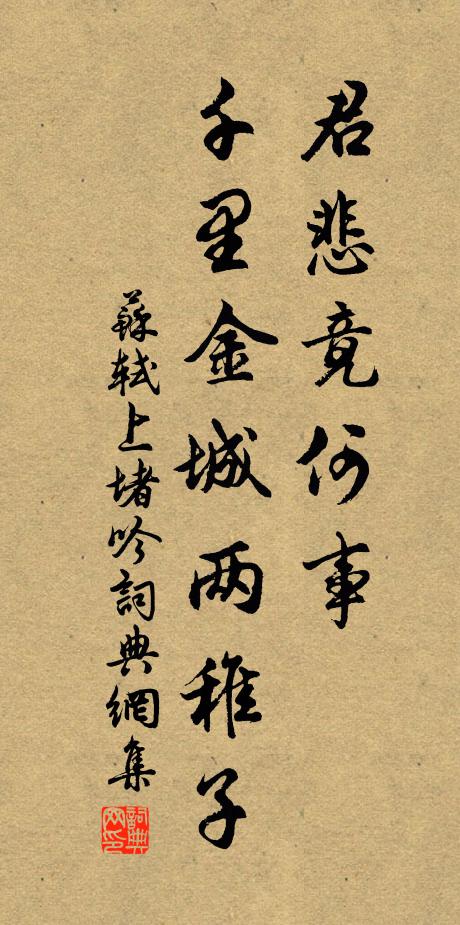 君悲竟何事
千里金城两稚子
蘇軾上堵吟詞典網集
詞典
网印